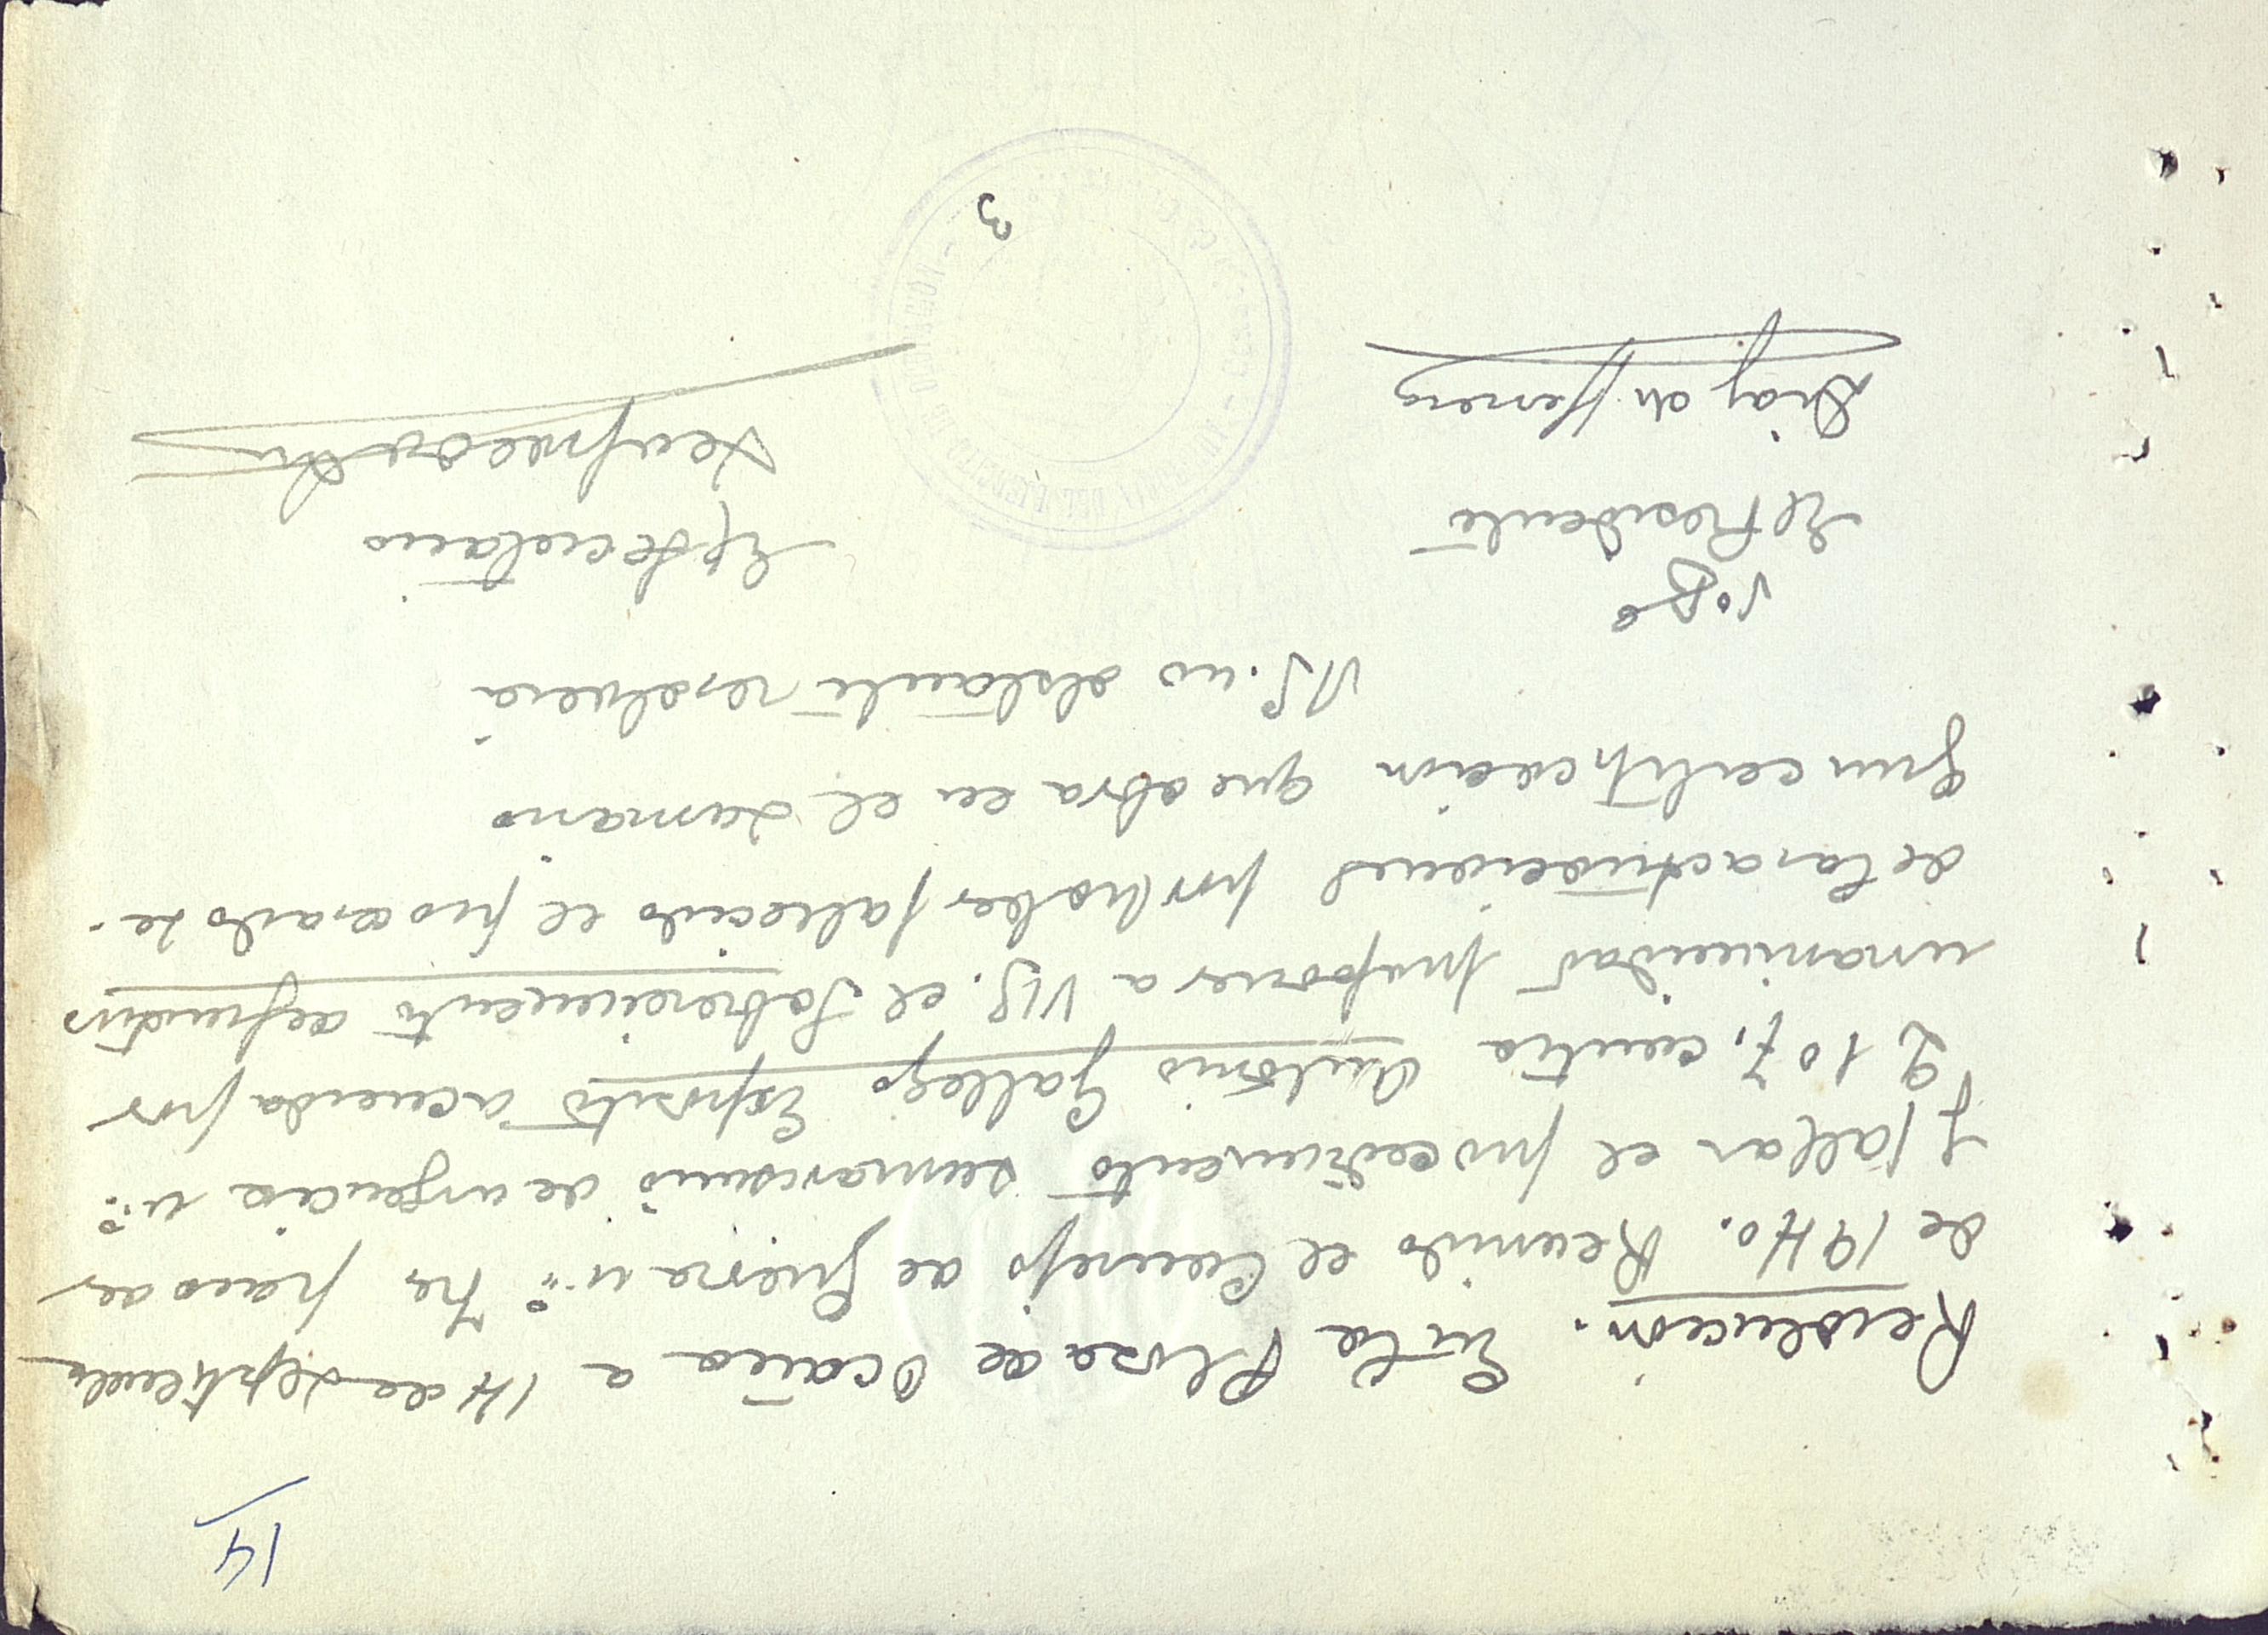 14
Resolucion. En la Plaza de Ocaña a 14 de septiembre
de 1940. Reunido el Consejo de guerra nº para ver
y fallar el procedimiento sumarisimo de urgencia nº
2107, contra Antonio Gallego Exposito acuerda por
unanimidad proponer a V.S. el Sobreseimiento definitivo
de las actuaciones por haber fallecido el procesado se-
gun certificacion que obra en el sumario
V.S. no obstante resolverá
VºBº
El Presidente
El Secretario
Diaz de Herrera
3